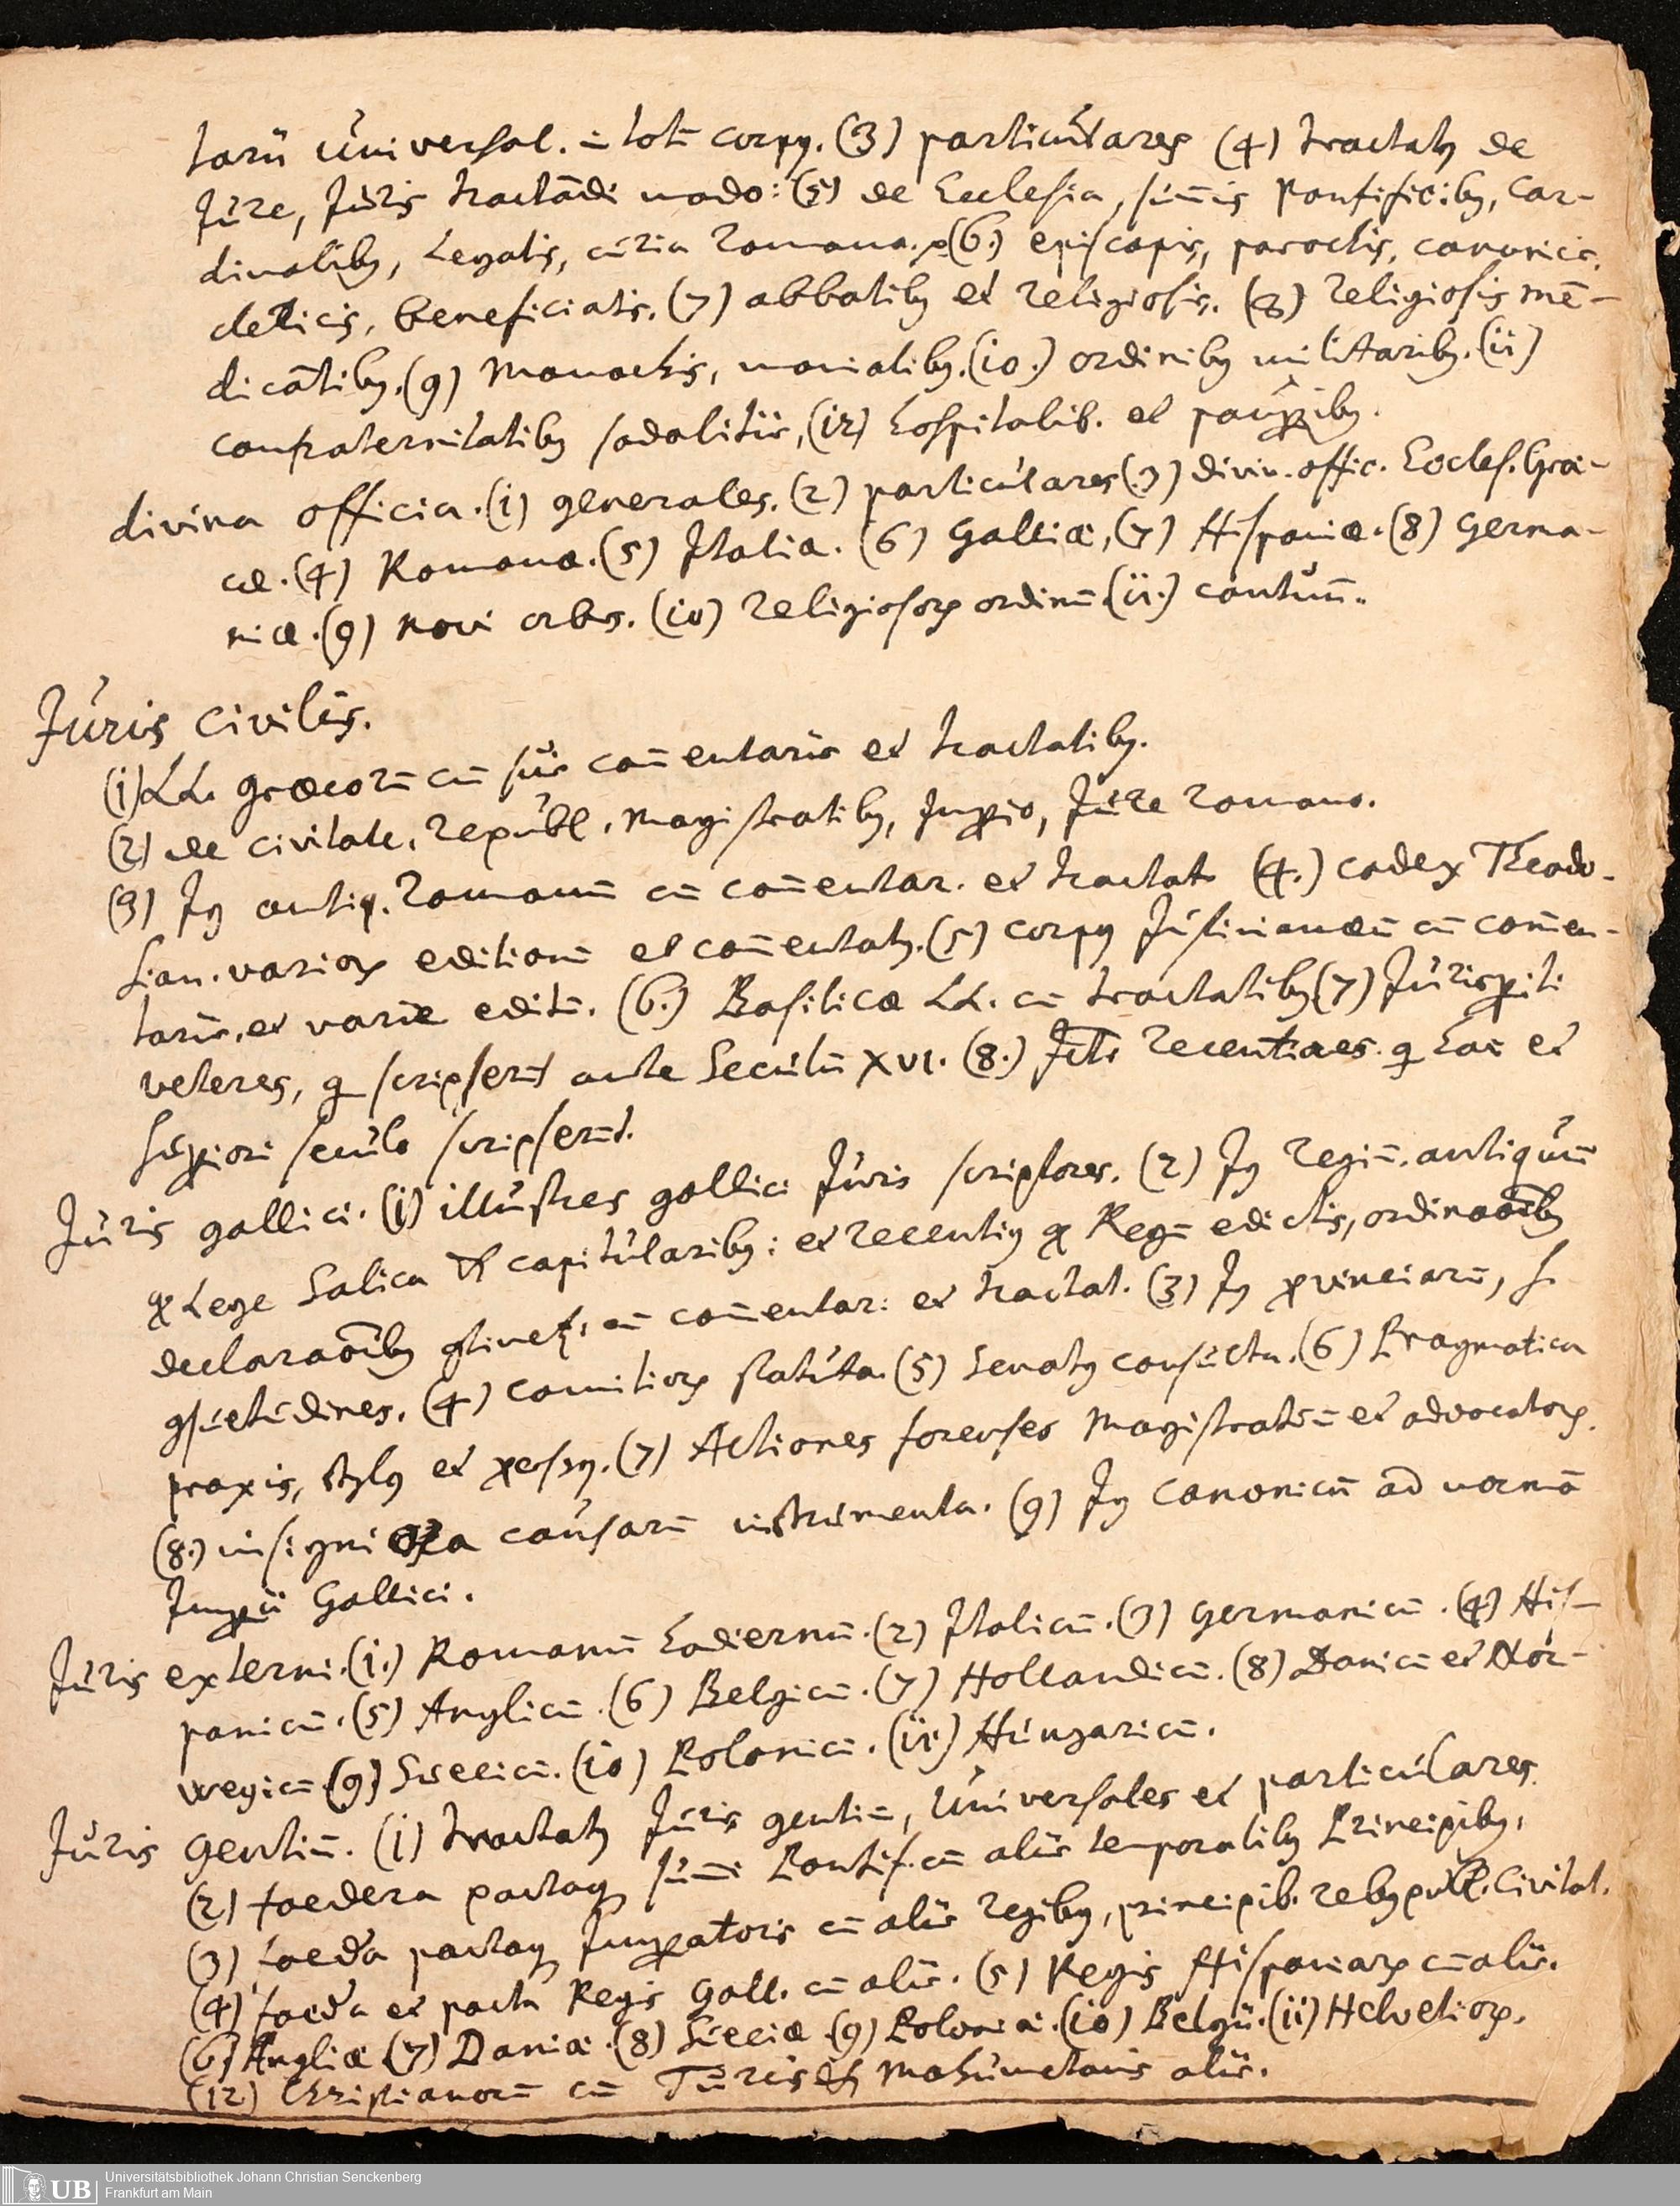 tarū universal. ī totū corpꝯ. (3) particulares (4) tractatꝯ de
Jure, Juris tractādi modo: (5) de Ecclesia, sum̄is Pontificibꝯ, Car-
dinalibꝯ, Legatis, curia Romana. (6.) episcopis, parochis, canonicis,
clericis, beneficiatis. (7) abbatibꝯ et religiosis. (8) religiosis mē-
dicātibꝯ. (9) Monachis, monialibꝯ. (io.) ordinibꝯ militaribꝯ. (ii)
confraternitatibꝯ sodalitiis, (i2) hospitalib. et paup̱ibꝯ.
divina officia. (i) generales. (2) particulares (3) divin. offic. Eccles. Græ-
cæ. (4) Romanæ. (5) Italiæ. (6) Galliæ, (7) Hispaniæ. (8) Germa-
niæ. (9) Novi orbis. (io) religiosoꝝ ordinū (ii.) cantuū.
Juris civilis.
(i) LL. Græcorū cū suis com̄entariis et tractatibꝯ.
(2) de civitate, republ. magistratibꝯ, Imp̱io, Jure Romano.
(3) Jꝯ antiq. Romanū cū com̄entar. et tractat. (4.) codex Theodo-
sian. varioꝝ editionū et com̄entatꝯ. (5) corpꝯ Justinianæū cū com̄en-
tariis, et variè editū. (6.) Basilicæ LL. cū tractatibꝯ (7) Jurisp̱iti
veteres, q scripserūt ante Seculū XVI. (8.) JCti recentiores q hoc et
sup̱iori seculo scripserūt.
Juris gallici. (i) illustres gallici Juris scriptores. (2) Jꝯ regiū, antiquū
q Lege Salica et capitularibꝯ: et recentiꝯ q Regū edictis, ordinaōibꝯ
declaraōibꝯ ꝯtinet, cū com̄entar: et tractat. (3) Jꝯ ꝓvinciarū, s.
ꝯsuetudines. (4) comitioꝝ statuta. (5) Senatꝯ consulta. (6) Pragmatica
praxis, stylꝯ et (7) Actiones forenses Magistratuū et advocatoꝝ.
(8.) insigniora causarū instrumenta. (9) Jꝯ Canonicū ad normā
Imp̱ii Gallici.
Juris externi. (i.) Romanū hodiernū. (2) Italicū. (3) Germanicū. (4) His-
panicū. (5) Anglicū. (6) Belgicū. (7) Hollandicū. (8) Danicū et Nor-
wegicū (9) Suecicū. (io) Polonicū. (ii) Hungaricū.
Juris Gentiū. (i) tractatꝯ Juris gentiū, Universales et particulares.
(2) foedera pactaq sum̄i Pontif. cū aliis temporalibꝯ Principibꝯ,
(3) foedā pactaq Imp̱atoris cū aliis regibꝯ, principib. rebꝯpubl. Civitat.
(4) foedā et pacta Regis Gall. cū aliis. (5) Regis Hispaniaꝝ cū aliis.
(6) Angliæ (7) Daniæ. (8) Sueciæ (9) Poloniæ. (io) Belgii. (ii) Helvetioꝝ.
(i2) Christianorū cū Turcis & Mahumetanis aliis.
UB Universitätsbibliothek Johann Christian Senckenberg
Frankfurt am Main